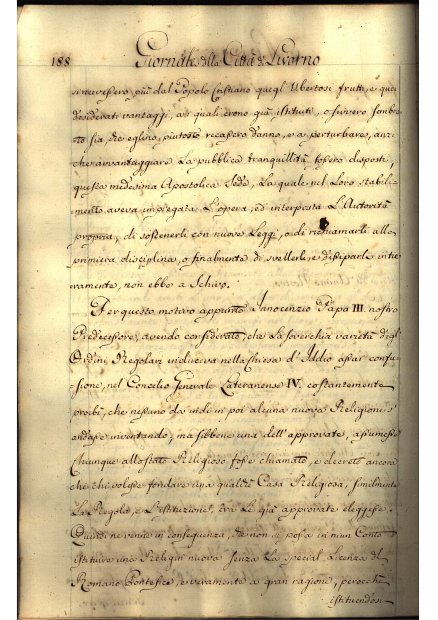 188 Giornale della Città di Livorno
si ricevessero più dal Popolo Cristiano quegli Ubertosi frutti, e quei
desiderati vantaggi, a' quali erono già istituiti, o furero sembra-
to sia, che eglino, piutosto recassero danno, e a perturbare, anzi-
che avvantaggiare la pubblica tranquillità fossero disposti,
questa medesima Apostolica Sede, la quale nel loro stabili-
mento aveva impiegata l'opera, ed interposta l'Autorità
propria, di sostenerli con nuove Leggi, o di richiamarli alla
primiera disciplina, o finalmente di svellerli, e dissiparli intie-
ramente, non ebbe a Schivo.
Per questo motivo appunto Innocenzio Papa III. nostro
Predecessore, avendo considerato, che la soverchia varietà degl'
Ordini Regolari induceva nella Chiesa d'Iddio assar confu-
sione, nel Concilio Generale Lateranense IV. costantemente
proibì, che nessuno da indi in poi alcuna nuova Religione s'
andasse inventando, ma sibbene una dell'approvate, assumesse
chiunque allo stato Religioso fosse chiamato, e decretò ancora
che chi volesse fondare una qualche Casa Religiosa, similmente
la Regola, e l'istituzione, tra le già approvate eleggesse.
Quindi ne venne in conseguenza, che non si possa in niun Conto
istituire una Religion nuova senza la special Licenza del
Romano Pontefice, e veramente a gran ragione, perochè
istituendosi